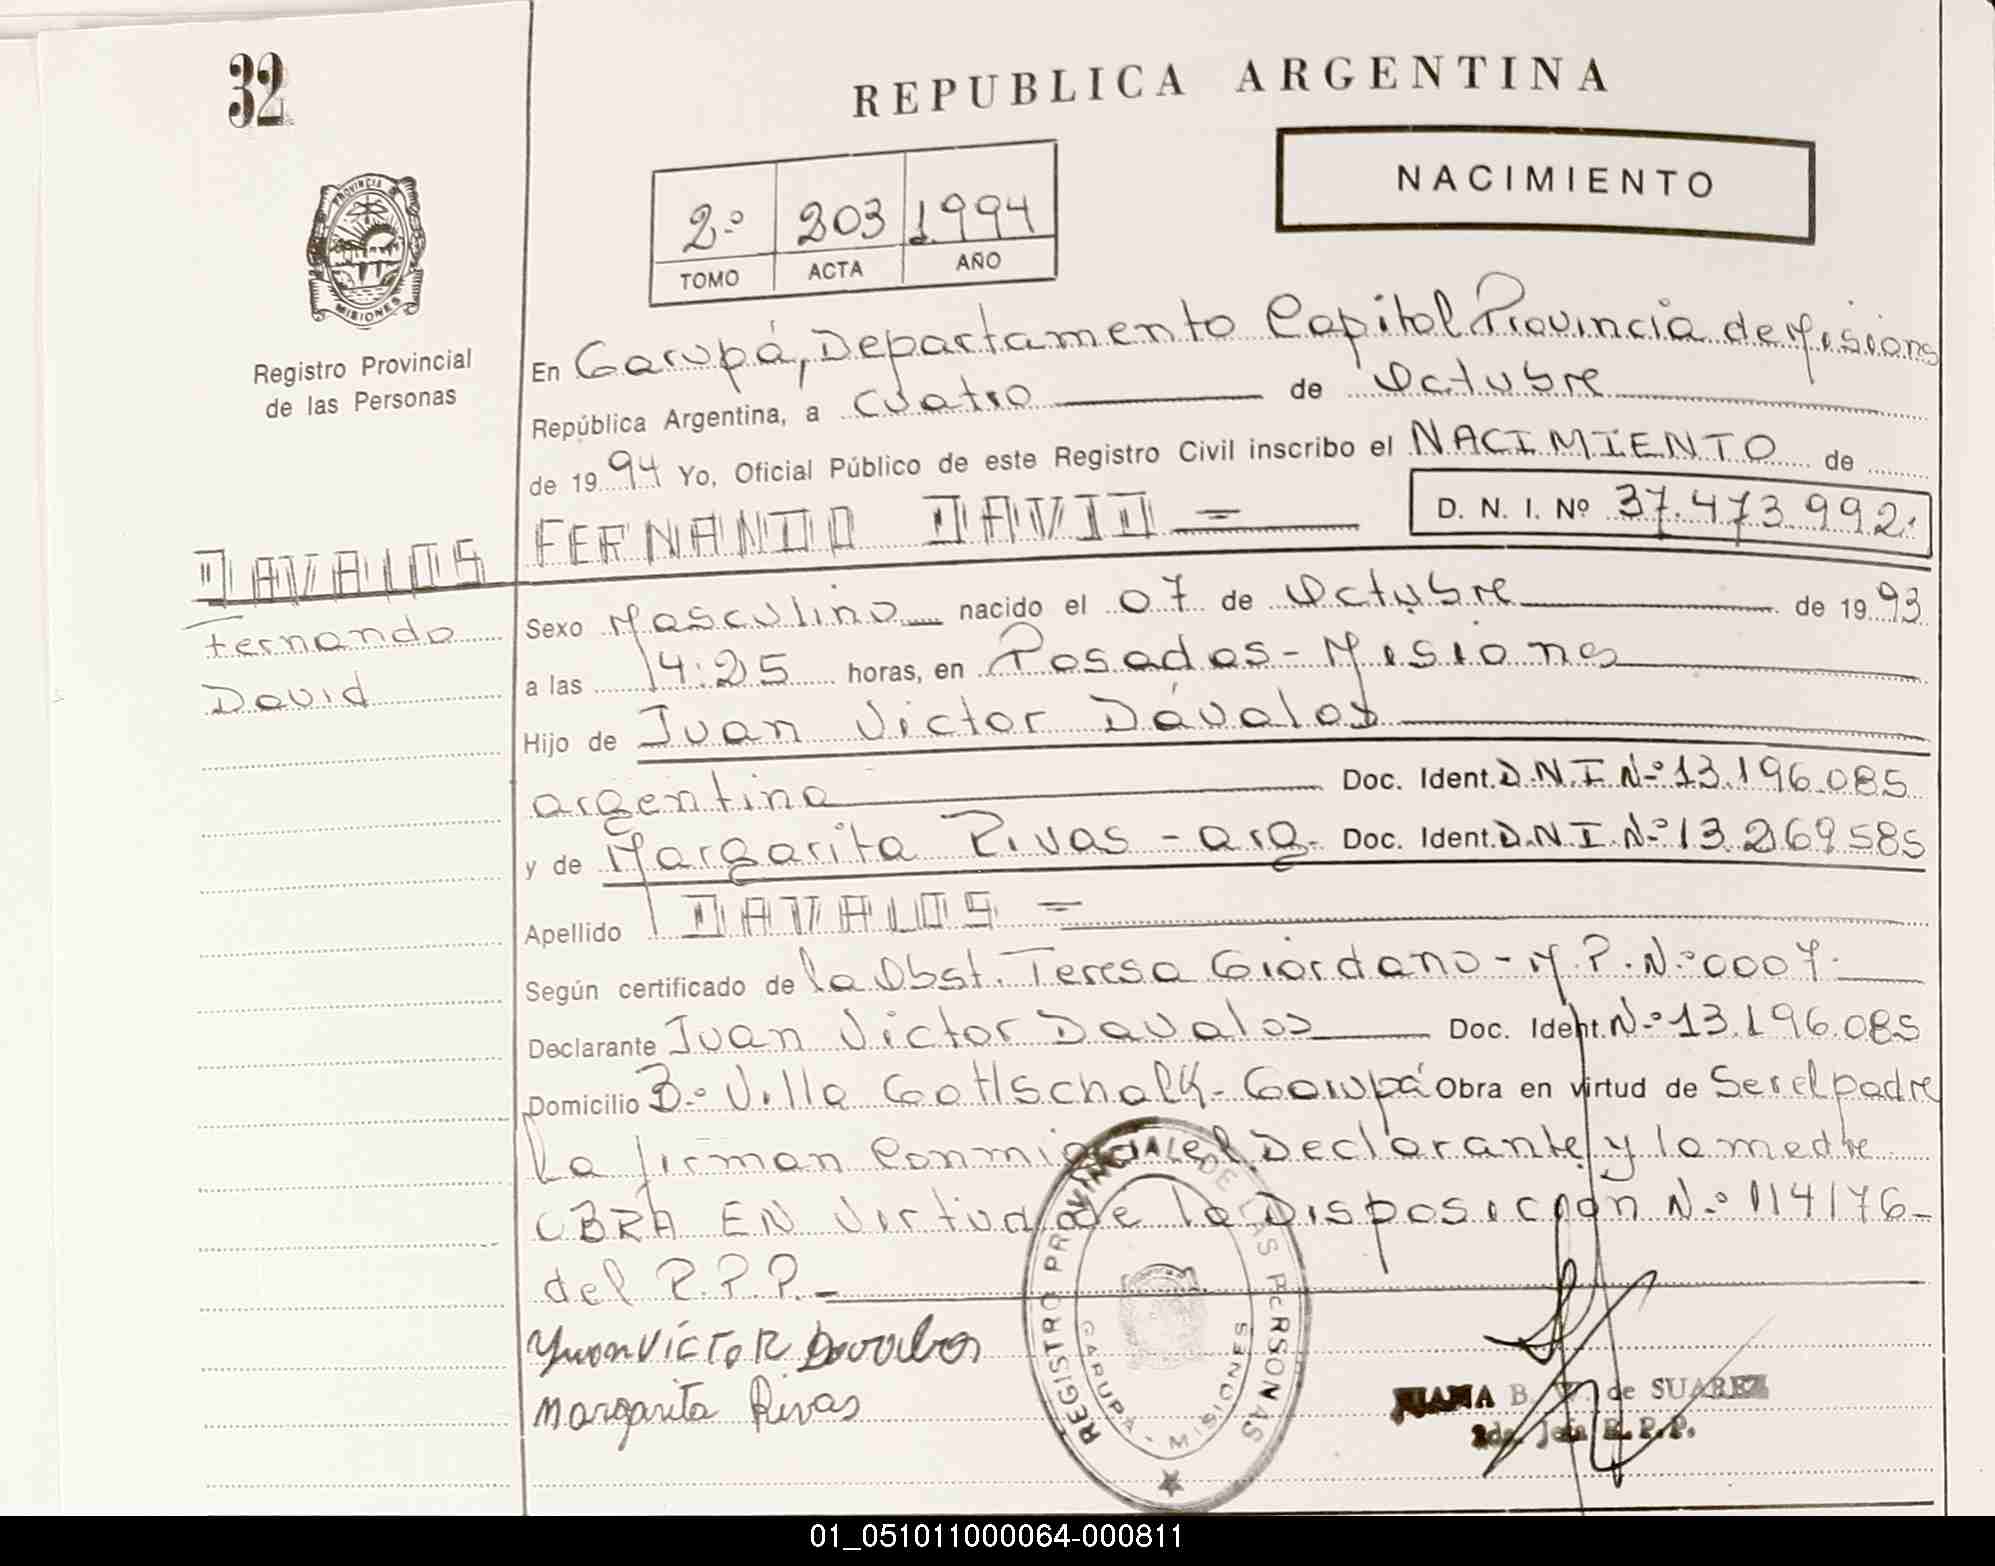 32
REPUBLICA ARGENTINA
NACIMIENTO
2º 203 1994
TOMO ACTA AÑO
PROVINCIA DE MISIONES
Registro Provincial
de las Personas
En Garupá, Departamento Capital Provincia de Misiones
República Argentina, a cuatro de Octubre
de 1994 Yo, Oficial Público de este Registro Civil inscribo el NACIMIENTO de
FERNANDO DAVID = D. N. I. Nº 37.473.992.
DAVALOS
Fernando
David
Sexo Masculino nacido el 07 de Octubre de 1993
a las 14:25 horas, en Posadas - Misiones
Hijo de Juan Victor Dávalos
argentina Doc. Ident. D.N.I.Nº 13.196.085
y de Margarita Rivas - arg. Doc. Ident. D.N.I.Nº 13.269.585
Apellido DAVALOS =
Según certificado de la Obst. Teresa Giordano - M.P.Nº 0007.
Declarante Juan Victor Davalos Doc. Ident. Nº 13.196.085
Domicilio Bº Villa Gottschalk - Garupá Obra en virtud de Ser el padre
La firman conmigo el Declarante y la madre
OBRA EN Virtud de la Disposición Nº 114/76-
del R.P.P. -
Yuan VICTOR Davalos
Margarita Rivas
REGISTRO PROVINCIAL DE LAS PERSONAS
GARUPA - MISIONES
B. de SUAREZ
2da. Jefa R.P.P.
01_051011000064-000811